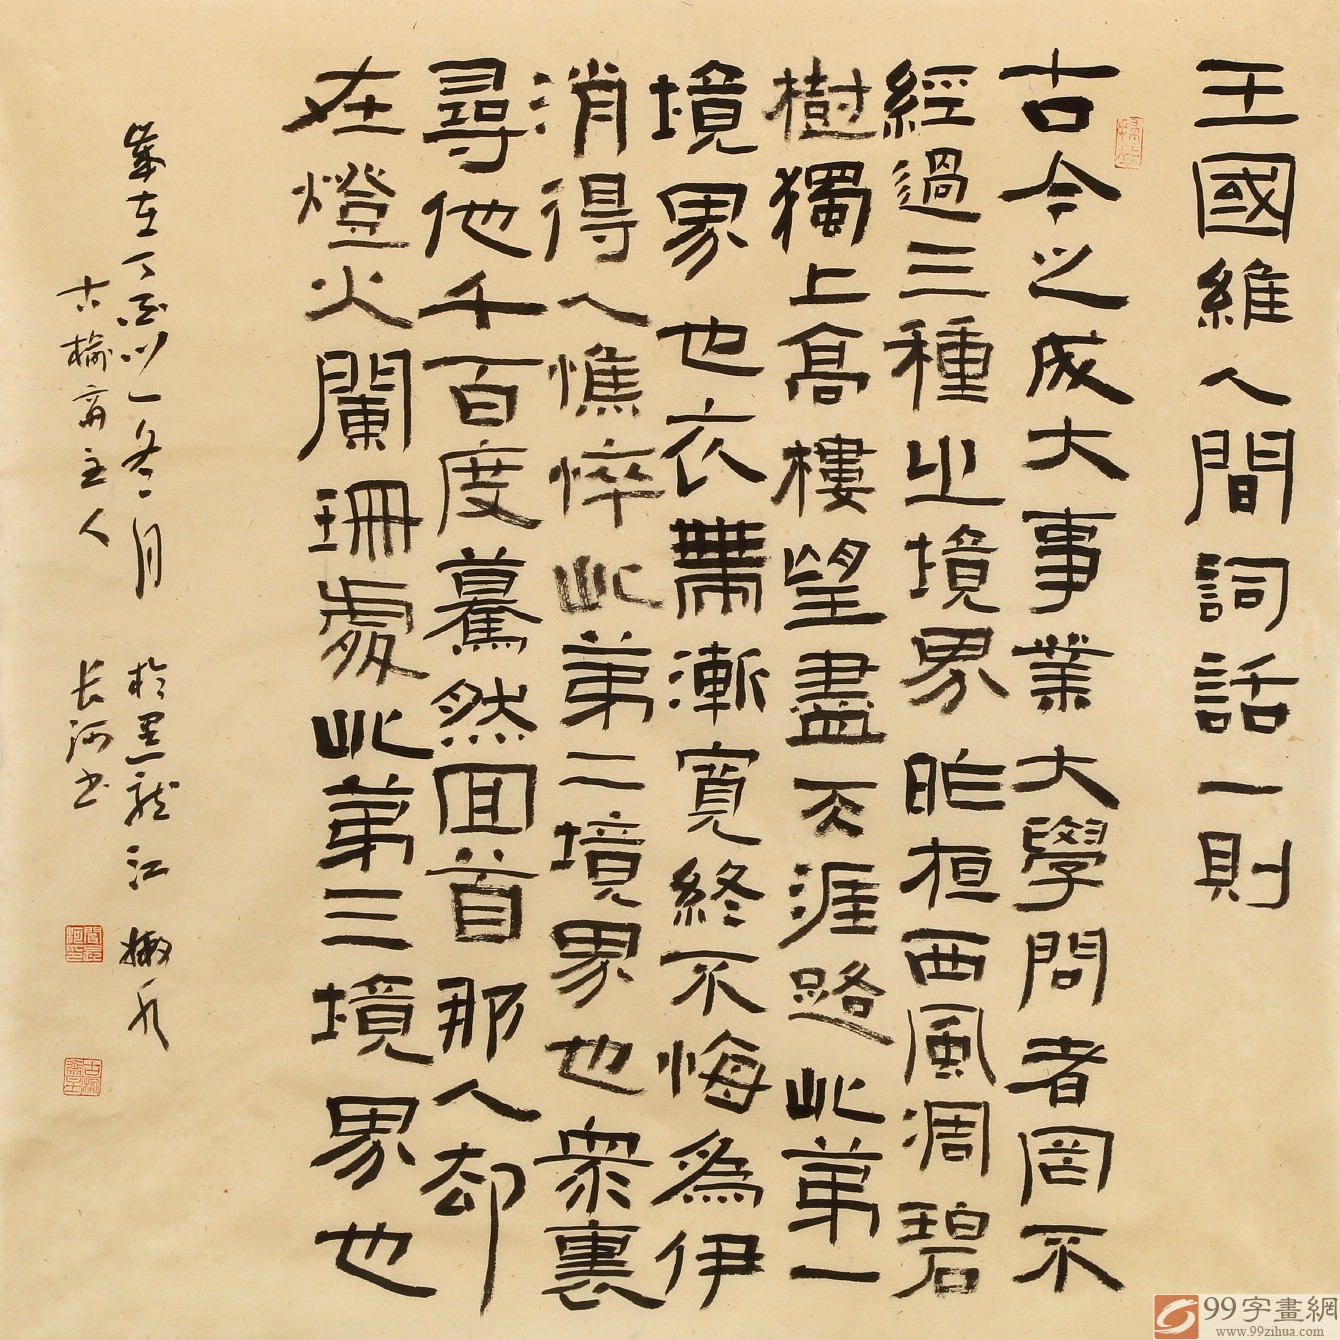 王國維人間詞話一則
古今之成大事業大學問者罔不
經過三種之境界昨夜西風凋碧
樹獨上高樓望盡天涯路此第一
境界也衣帶漸寬終不悔為伊
消得人憔悴此第二境界也衆裏
尋他千百度驀然回首那人却
在燈火闌珊處此第三境界也
歲在丁酉冬月 於黑龍江
古榆齋主人 長河書
99字畫網
www.99zihua.com